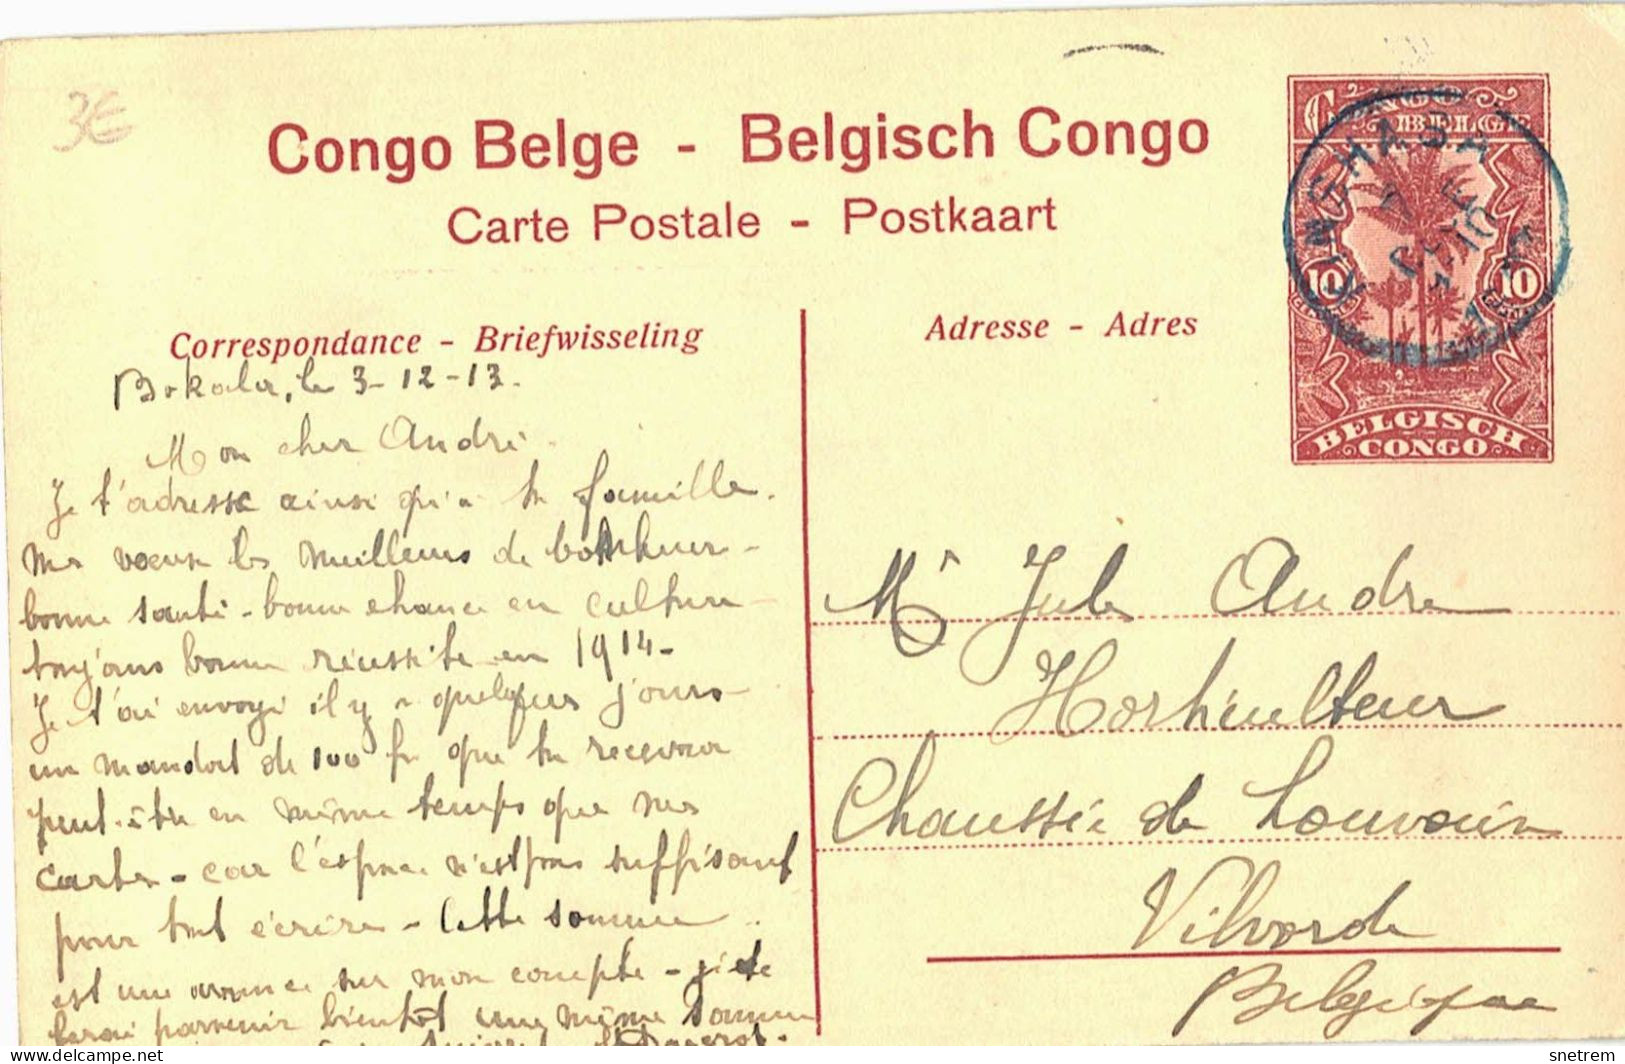 3€
Congo Belge - Belgisch Congo
Carte Postale - Postkaart
CONGO BELGE
KINSHASA
10 10
BELGISCH CONGO
Correspondance - Briefwisseling
Bokala, le 3-12-13.
Mon cher André.
Je t'adresse ainsi qu'à ta famille.
mes voeux les meilleurs de bonheur -
bonne santé - bonne chance en culture -
toujours bonne réussite en 1914 -
Je t'ai envoyé il y a quelques jours -
un mandat de 100 fr que tu recevras
peut-être en même temps que mes
cartes - car l'espace n'est pas suffisant
pour tout écrire - Cette somme
est une avance sur mon compte - je te
ferai parvenir bientôt une même somme
Adresse - Adres
Mr Jules André
Horticulteur
Chaussée de Louvain
Vilvorde
Belgique
snetrem